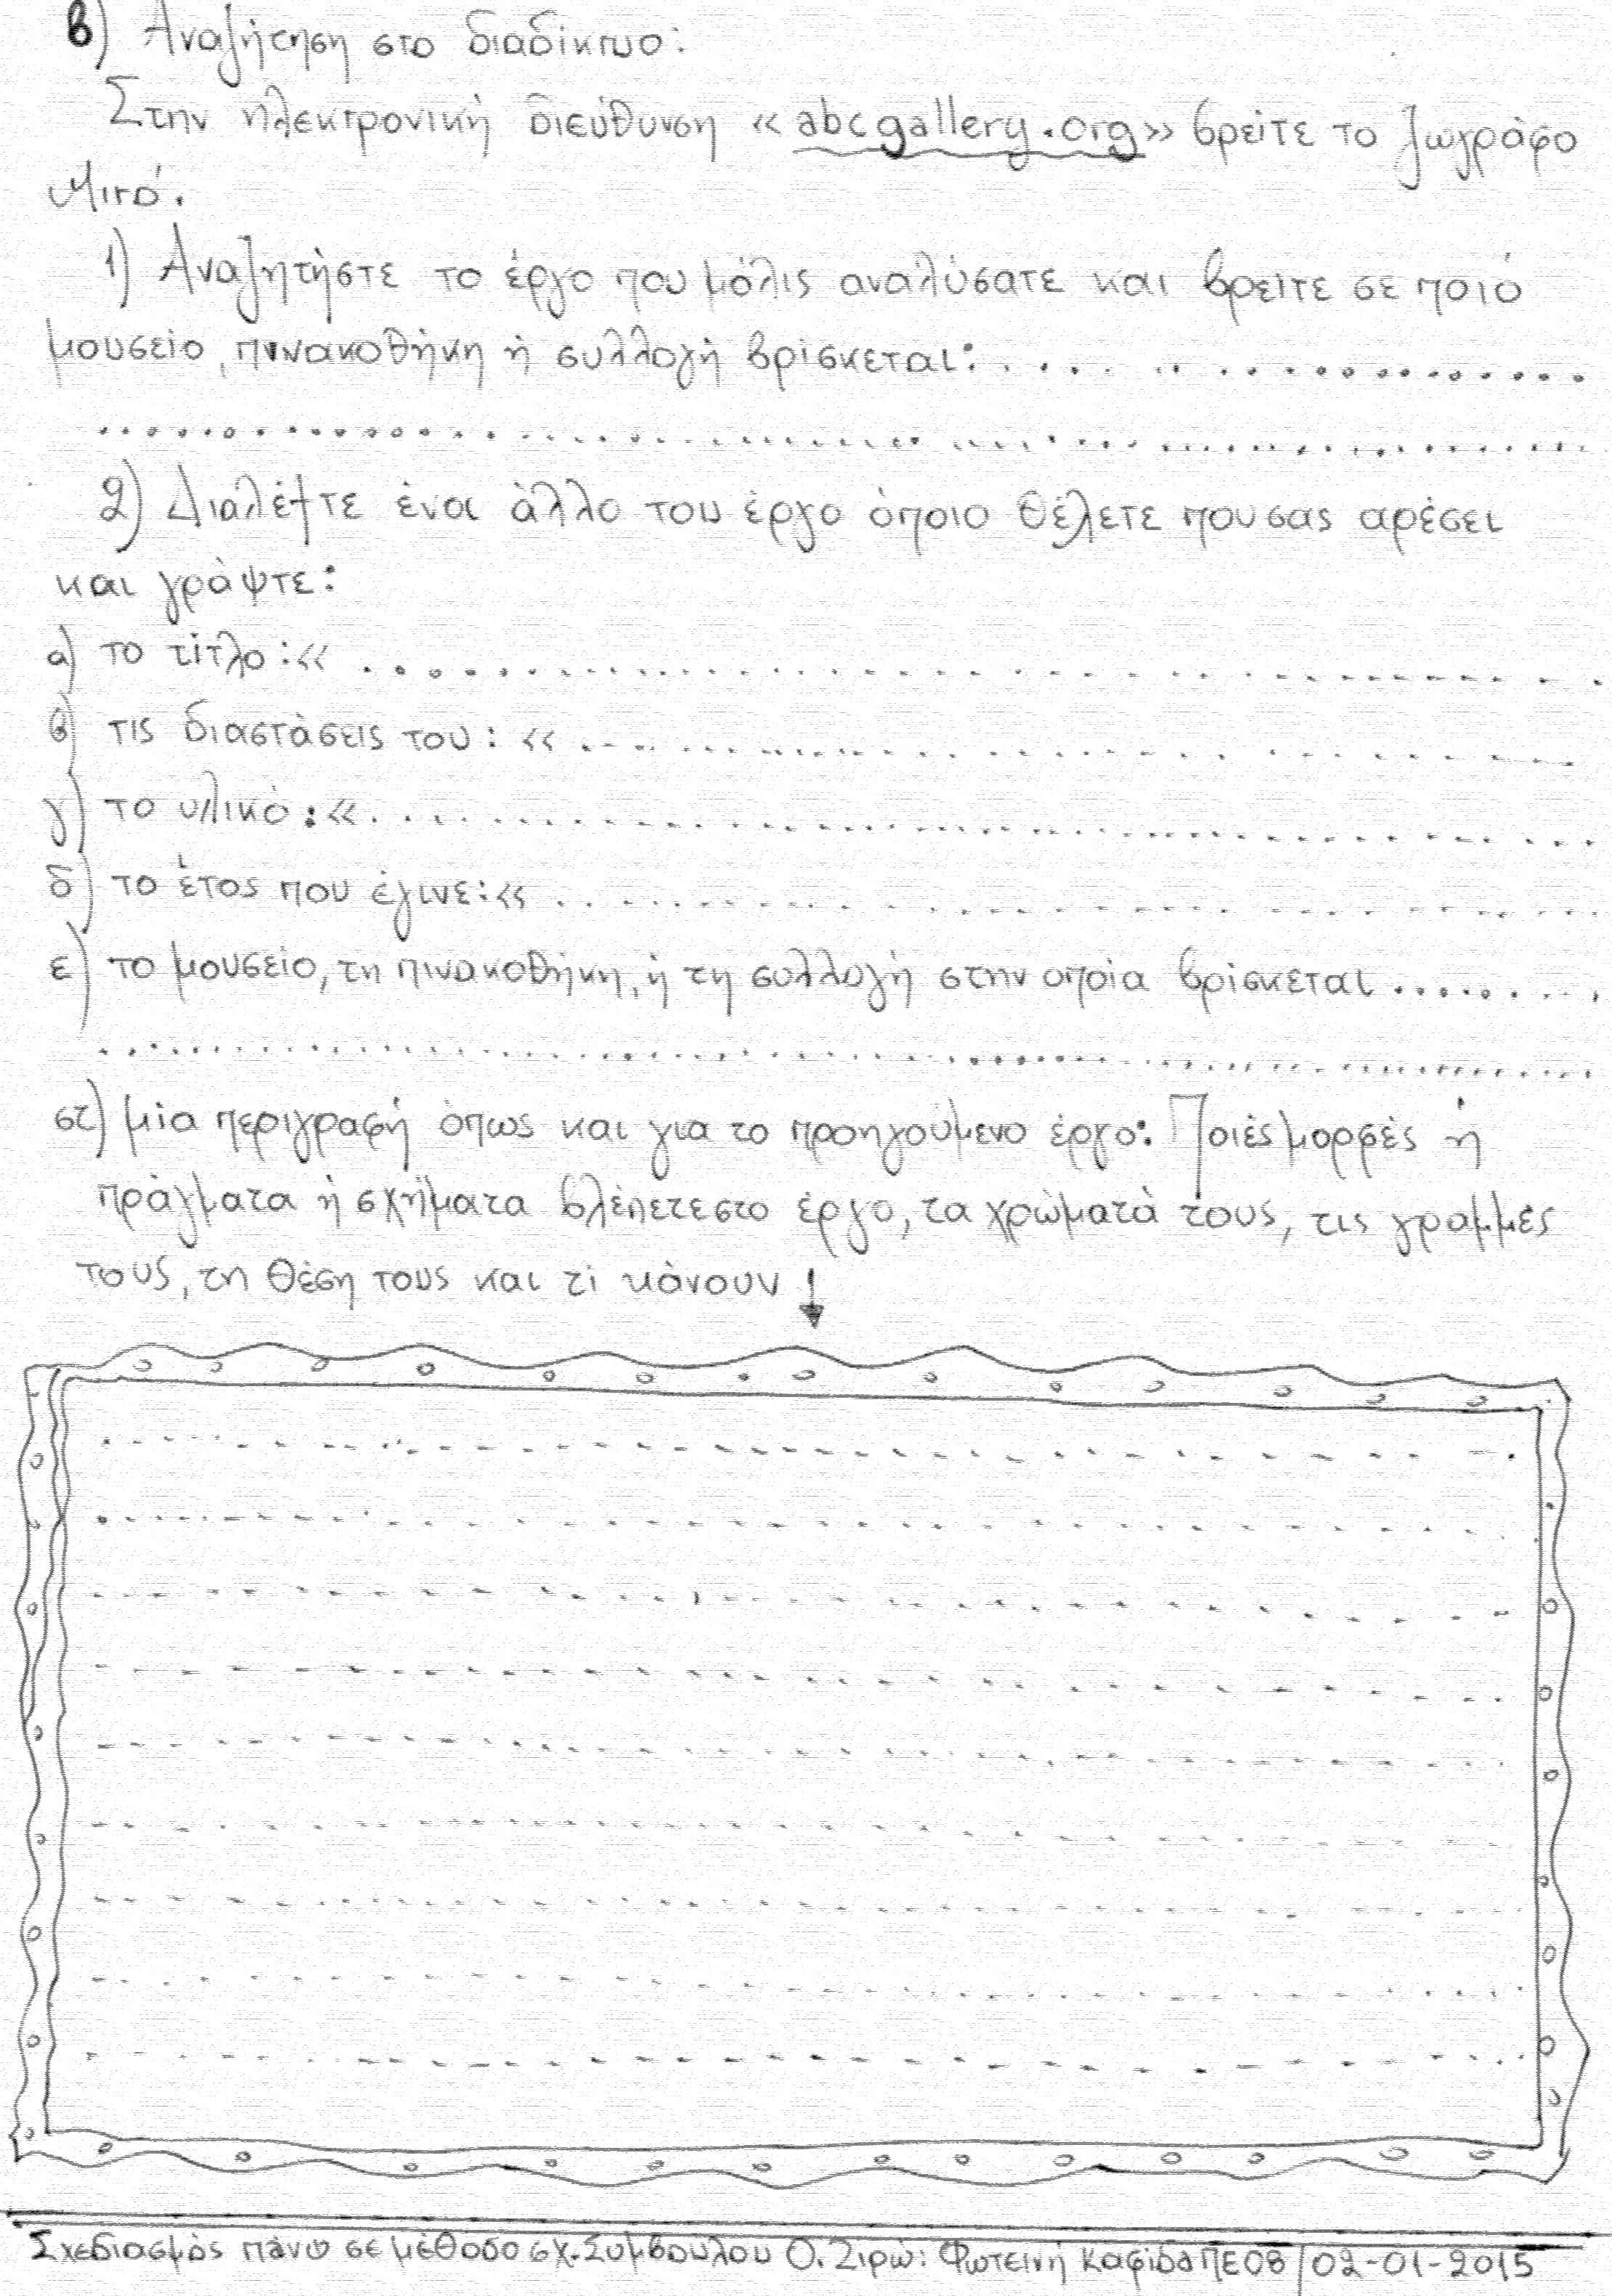 β) Αναζήτηση στο διαδίκτυο:
Στην ηλεκτρονική διεύθυνση «abcgallery.org» βρείτε το ζωγράφο
Μιρό.
1) Αναζητήστε το έργο που μόλις αναλύσατε και βρείτε σε ποιό
μουσείο, πινακοθήκη ή συλλογή βρίσκεται:
2) Διαλέξτε ένα άλλο του έργο όποιο θέλετε που σας αρέσει
και γράψτε:
α) το τίτλο: «
β) τις διαστάσεις του: «
γ) το υλικό: «
δ) το έτος που έγινε: «
ε) το μουσείο, τη πινακοθήκη, ή τη συλλογή στην οποία βρίσκεται
στ) μία περιγραφή όπως και για το προηγούμενο έργο: Ποιές μορφές ή
πράγματα ή σχήματα βλέπετε στο έργο, τα χρώματά τους, τις γραμμές
τους, τη θέση τους και τί κάνουν ↓
Σχεδιασμός πάνω σε μέθοδο σχ. Συμβούλου Ο. Ζιρώ: Φωτεινή Καφίδα ΠΕ08/02-01-2015